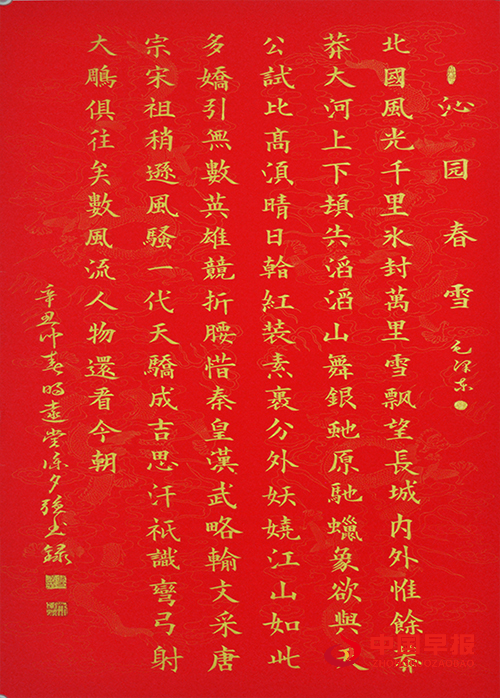 沁园春雪 毛泽东
北國風光千里氷封萬里雪飄望長城内外惟餘莽
莽大河上下頓失滔滔山舞銀虵原馳蠟象欲與天
公試比高湏晴日看紅装素裹分外妖嬈江山如此
多嬌引無數英雄競折腰惜秦皇漢武略輸文采唐
宗宋祖稍遜風騷一代天驕成吉思汗祇識彎弓射
大鵰俱往矣數風流人物還看今朝
辛丑仲春明遠堂
中国早报
ZHONGGUOZAOBAO